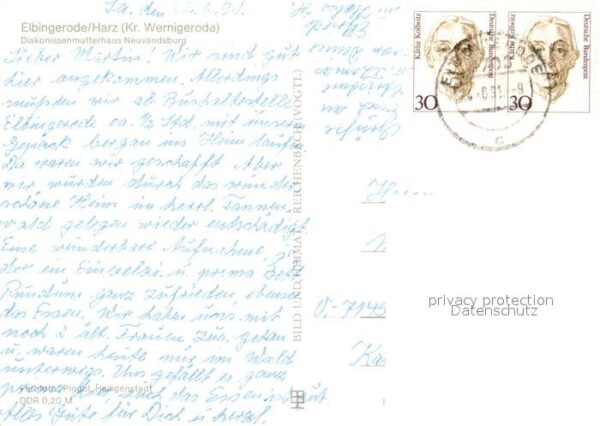 Elbingerode/Harz (Kr. Wernigerode)
Diakonissenmutterhaus Neuvandsburg
Lieber Martin! Wir sind gut
hier angekommen. Allerdings
mußten wir ab Bushaltestelle
Elbingerode ca. 1/2 Std. mit unserem
Gepäck bergan ins Heim laufen
Da waren wir geschafft. Aber
wir wurden durch das wunder
schöne Heim im herrl. Tannen
wald gelegen wieder entschädigt.
Eine wunderbare Aufnahme, je
der ein Einzelzi. u. prima Bett
Rundum ganz zufrieden, ebenso
das Essen. Wir haben uns mit
noch 2 ält. Frauen zus. getan
u. waren heute nur im Wald
unterwegs. Uns gefällt es ganz
hier, auch das Essen ist gut.
Alles Gute für Dich u. herzl.
Grüße
BILD UND HEIMAT REICHENBACH (VOGTL)
Heiligenstadt
DDR 0,20 M
Käthe Kollwitz
Deutsche Bundespost
30
Käthe Kollwitz
Deutsche Bundespost
30
privacy protection
Datenschutz